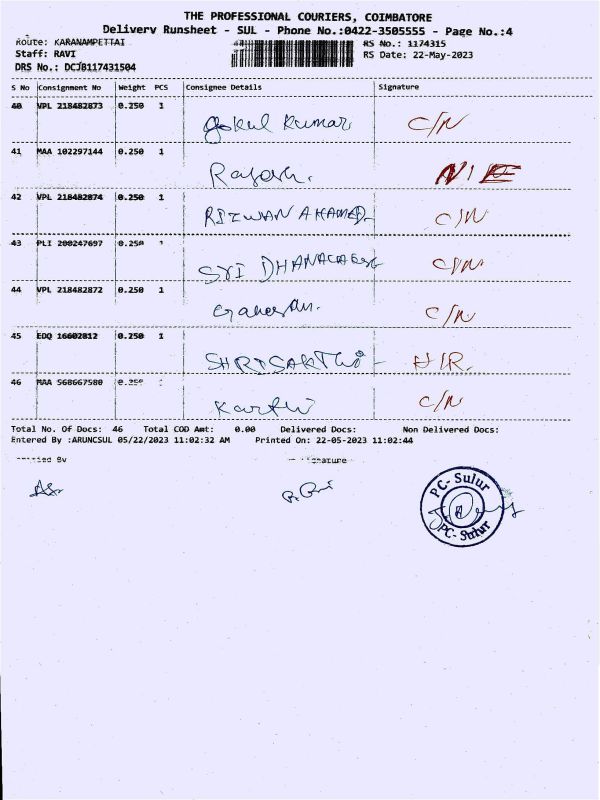 THE PROFESSIONAL COURIERS, COIMBATORE
Delivery Runsheet - SUL - Phone No.:0422-3505555 - Page No.:4
Route: KARANAMPETTAI RS No.: 1174315
Staff: RAVI RS Date: 22-May-2023
DRS No.: DCJB117431504
S No Consignment No Weight PCS Consignee Details Signature
40 VPL 218482873 0.250 1
Gokul Kumar C/N
41 MAA 102297144 0.250 1
Rajesh.
42 VPL 218482874 0.250 1
RIZWAN AHAMED C/N
43 PLI 200247697 0.250 1
SRI C/N
44 VPL 218482872 0.250 1
Ganesan. C/N
45 EDQ 16602812 0.250 1
SHRISAKTHI H/R.
46 MAA 568667580 0.250 1
Karthi C/N
Total No. Of Docs: 46 Total COD Amt: 0.00 Delivered Docs: Non Delivered Docs:
Entered By :ARUNCSUL 05/22/2023 11:02:32 AM Printed On: 22-05-2023 11:02:44
By Signature
PC- Sulur
PC- Sulur